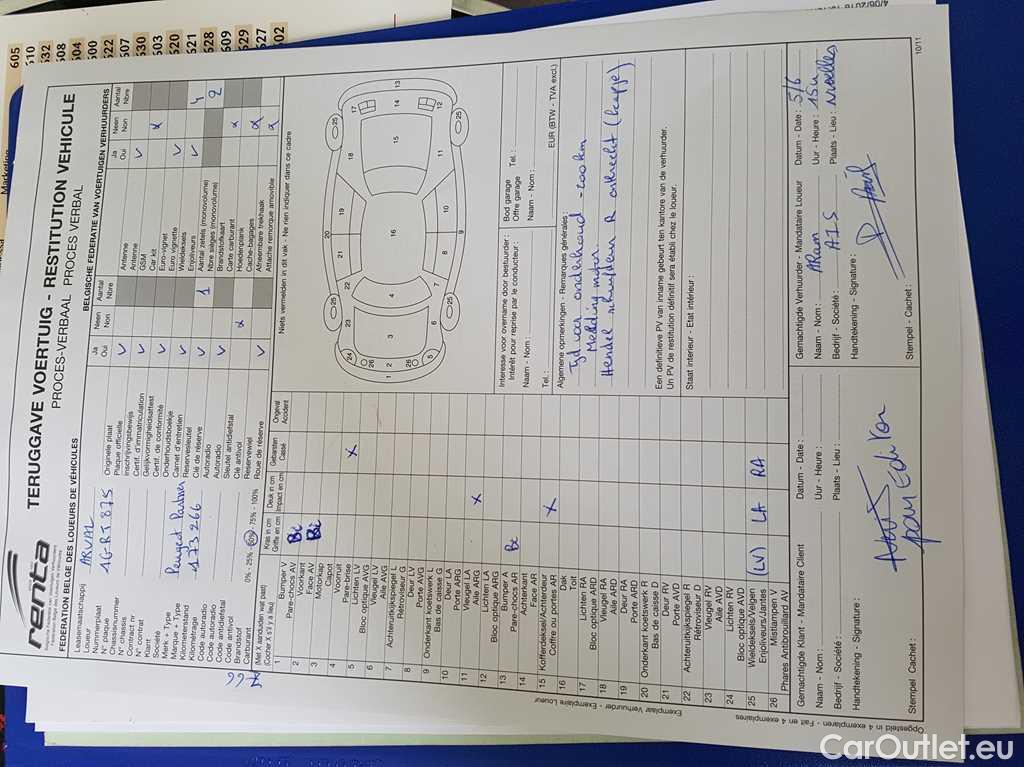 605
510
532
508
504
500
522
507
530
503
520
521
528
509
529
527
502
Marketing
renta
TERUGGAVE VOERTUIG - RESTITUTION VEHICULE
PROCES-VERBAAL PROCES VERBAL
FEDERATION BELGE DES LOUEURS DE VÉHICULES
BELGISCHE FEDERATIE VAN VOERTUIGEN VERHUURDERS
Leasemaatschappij
Loueur
ARVAL
Nummerplaat
N° plaque
1GRJ 875
Chassisnummer
N° chassis
Contract nr
N° contrat
Klant
Société
Merk + Type
Marque + Type
Peugeot Partner
Kilometerstand
Kilométrage
173266
Code autoradio
Code autoradio
Code antidiefstal
Code antivol
Brandstof
Carburant
0% - 25% - 50% - 75% - 100%
(Met X aanduiden wat past)
(Cocher X s'il y a lieu)
Ja
Oui
Neen
Non
Aantal
Nbre
Originele plaat
Plaque officielle
V
Inschrijvingsbewijs
Certif. d'immatriculation
V
Gelijkvormigheidsattest
Certif. de conformité
V
Onderhoudsboekje
Carnet d'entretien
V
Reservesleutel
Clé de réserve
V
1
Autoradio
Autoradio
V
Sleutel antidiefstal
Clé antivol
Reservewiel
Roue de réserve
V
Ja
Oui
Neen
Non
Aantal
Nbre
Antenne
Antenne
V
GSM
Car kit
Euro-vignet
Euro vignette
V
Wieldeksels
Enjoliveurs
V
4
Aantal zetels (monovolume)
Nbre sièges (monovolume)
2
Brandstofkaart
Carte carburant
Hoedenplank
Cache-bagages
Afneembare trekhaak
Attache remorque amovible
Kras in cm
Griffe en cm
Deuk in cm
Impact en cm
Gebarsten
Cassé
Ongeval
Accident
1 Bumper V
Pare-chocs AV
2 Voorkant
Face AV
3 Motorkap
Capot
4 Voorruit
Pare-brise
X
5 Lichten LV
Bloc optique AVG
6 Vleugel LV
Aile AVG
7 Achteruitkijkspiegel L
Rétroviseur G
8 Deur LV
Porte AVG
9 Onderkant koetswerk L
Bas de caisse G
10 Deur LA
Porte ARG
11 Vleugel LA
Aile ARG
X
12 Lichten LA
Bloc optique ARG
13 Bumper A
Pare-chocs AR
14 Achterkant
Face AR
15 Kofferdeksel/Achterdeur
Coffre ou portes AR
X
16 Dak
Toit
17 Lichten RA
Bloc optique ARD
18 Vleugel RA
Aile ARD
19 Deur RA
Porte ARD
20 Onderkant koetswerk R
Bas de caisse D
21 Deur RV
Porte AVD
22 Achteruitkijkspiegel R
Rétroviseur D
23 Vleugel RV
Aile AVD
24 Lichten RV
Bloc optique AVD
25 Wieldeksels/Velgen
Enjoliveurs/Jantes
(LV) LA RA
26 Mistlampen V
Phares Antibrouillard AV
Niets vermelden in dit vak - Ne rien indiquer dans ce cadre
Interesse voor overname door bestuurder :
Intérêt pour reprise par le conducteur :
Naam - Nom :
Tel. :
Bod garage
Offre garage
Tel. :
Naam - Nom :
EUR (BTW - TVA excl.)
Algemene opmerkingen - Remarques générales :
Tijd voor onderhoud -200 km
Melding motor
Hendel schuifdeur R ontbreekt (kapje)
Een definitieve PV van inname gebeurt ten kantore van de verhuurder.
Un PV de restitution définitif sera établi chez le loueur.
Staat interieur - Etat intérieur :
Gemachtigde Klant - Mandataire Client
Datum - Date :
Naam - Nom :
Uur - Heure :
Bedrijf - Société :
Plaats - Lieu :
Handtekening - Signature :
Stempel Cachet :
Gemachtigde Verhuurder - Mandataire Loueur
Datum - Date : 5/6
Naam - Nom : ARam
Uur - Heure : 15u
Bedrijf - Société : AIS
Plaats - Lieu : Nivelles
Handtekening - Signature :
Stempel - Cachet :
Exemplaar Verhuurder - Exemplaire Loueur
Opgesteld in 4 exemplaren - Fait en 4 exemplaires
10/11
CarOutlet.eu